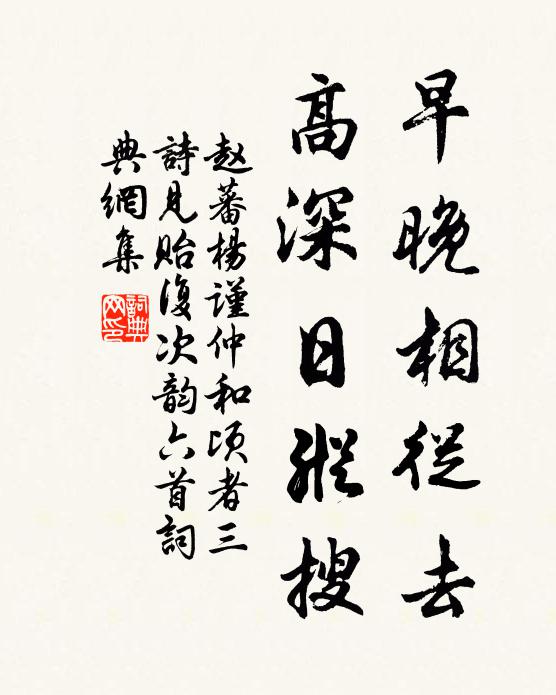 早晚相從去
高深日縱搜
赵蕃楊謹仲和頃者三
詩見貽復次韵六首詞
典網集
詞典网印